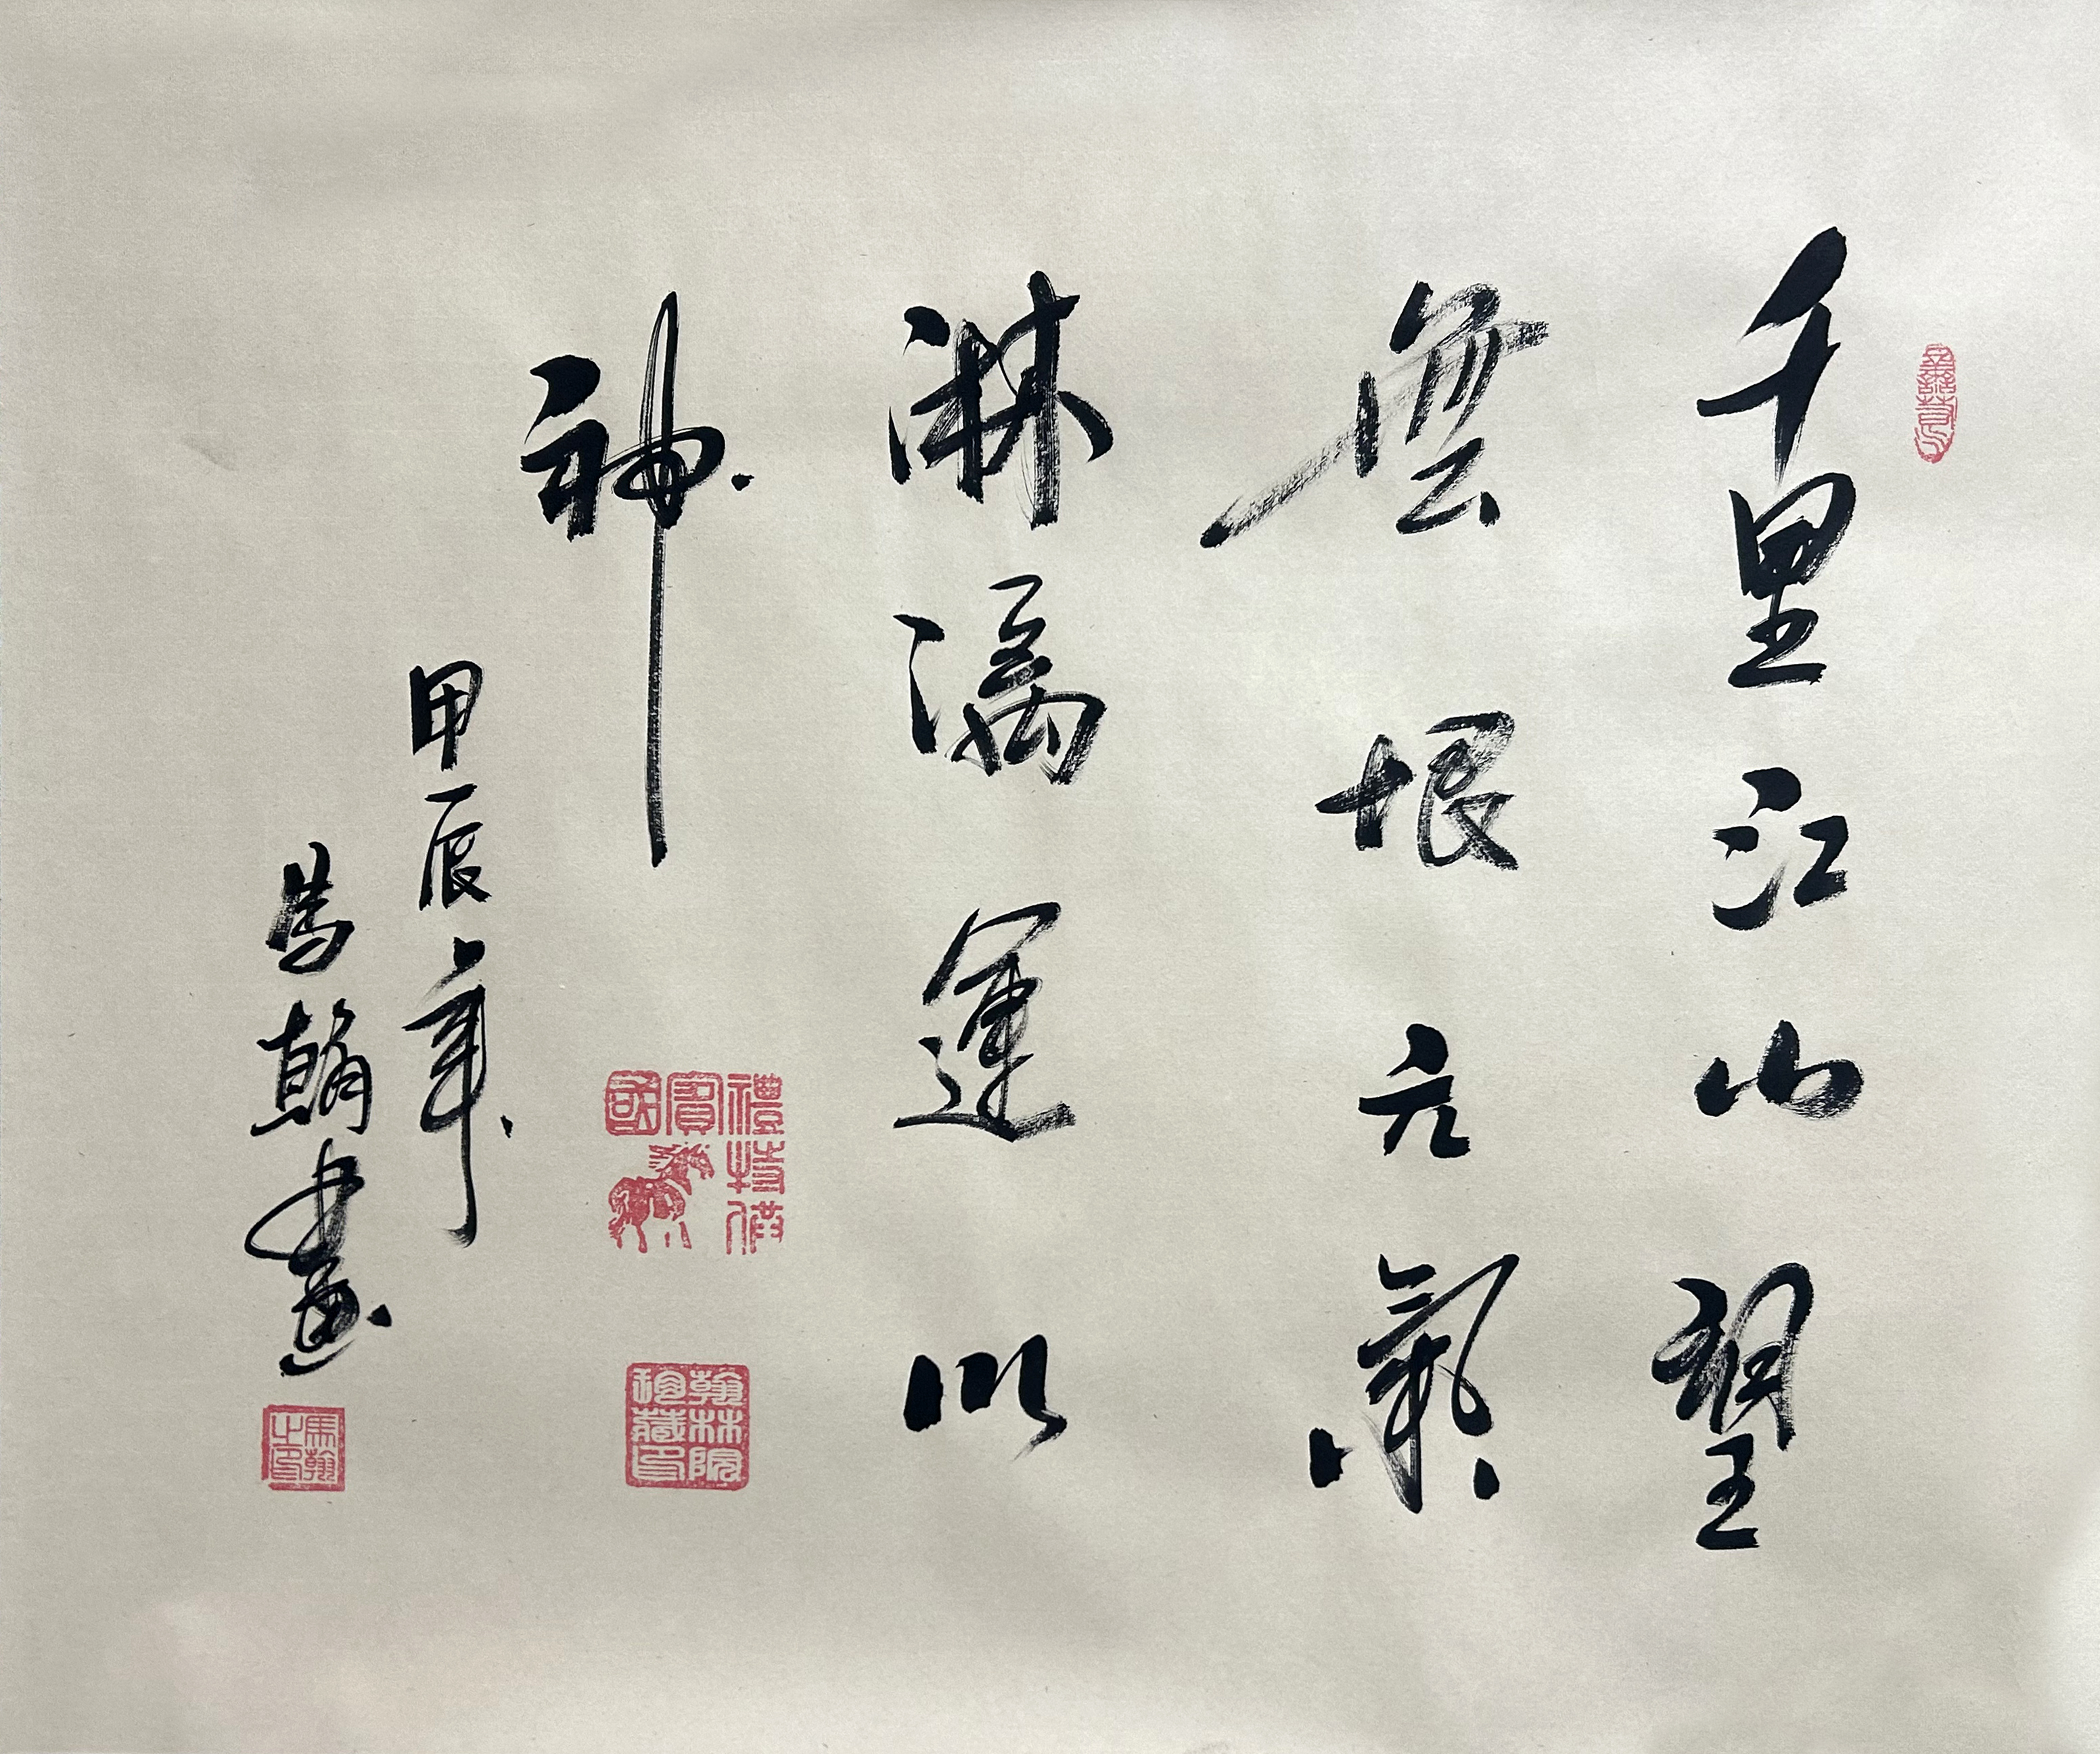 千里江山望
無垠元氣
淋漓運以
神
甲辰年
馬翰書
國賓禮特供
翰林院珍藏印
馬翰之印